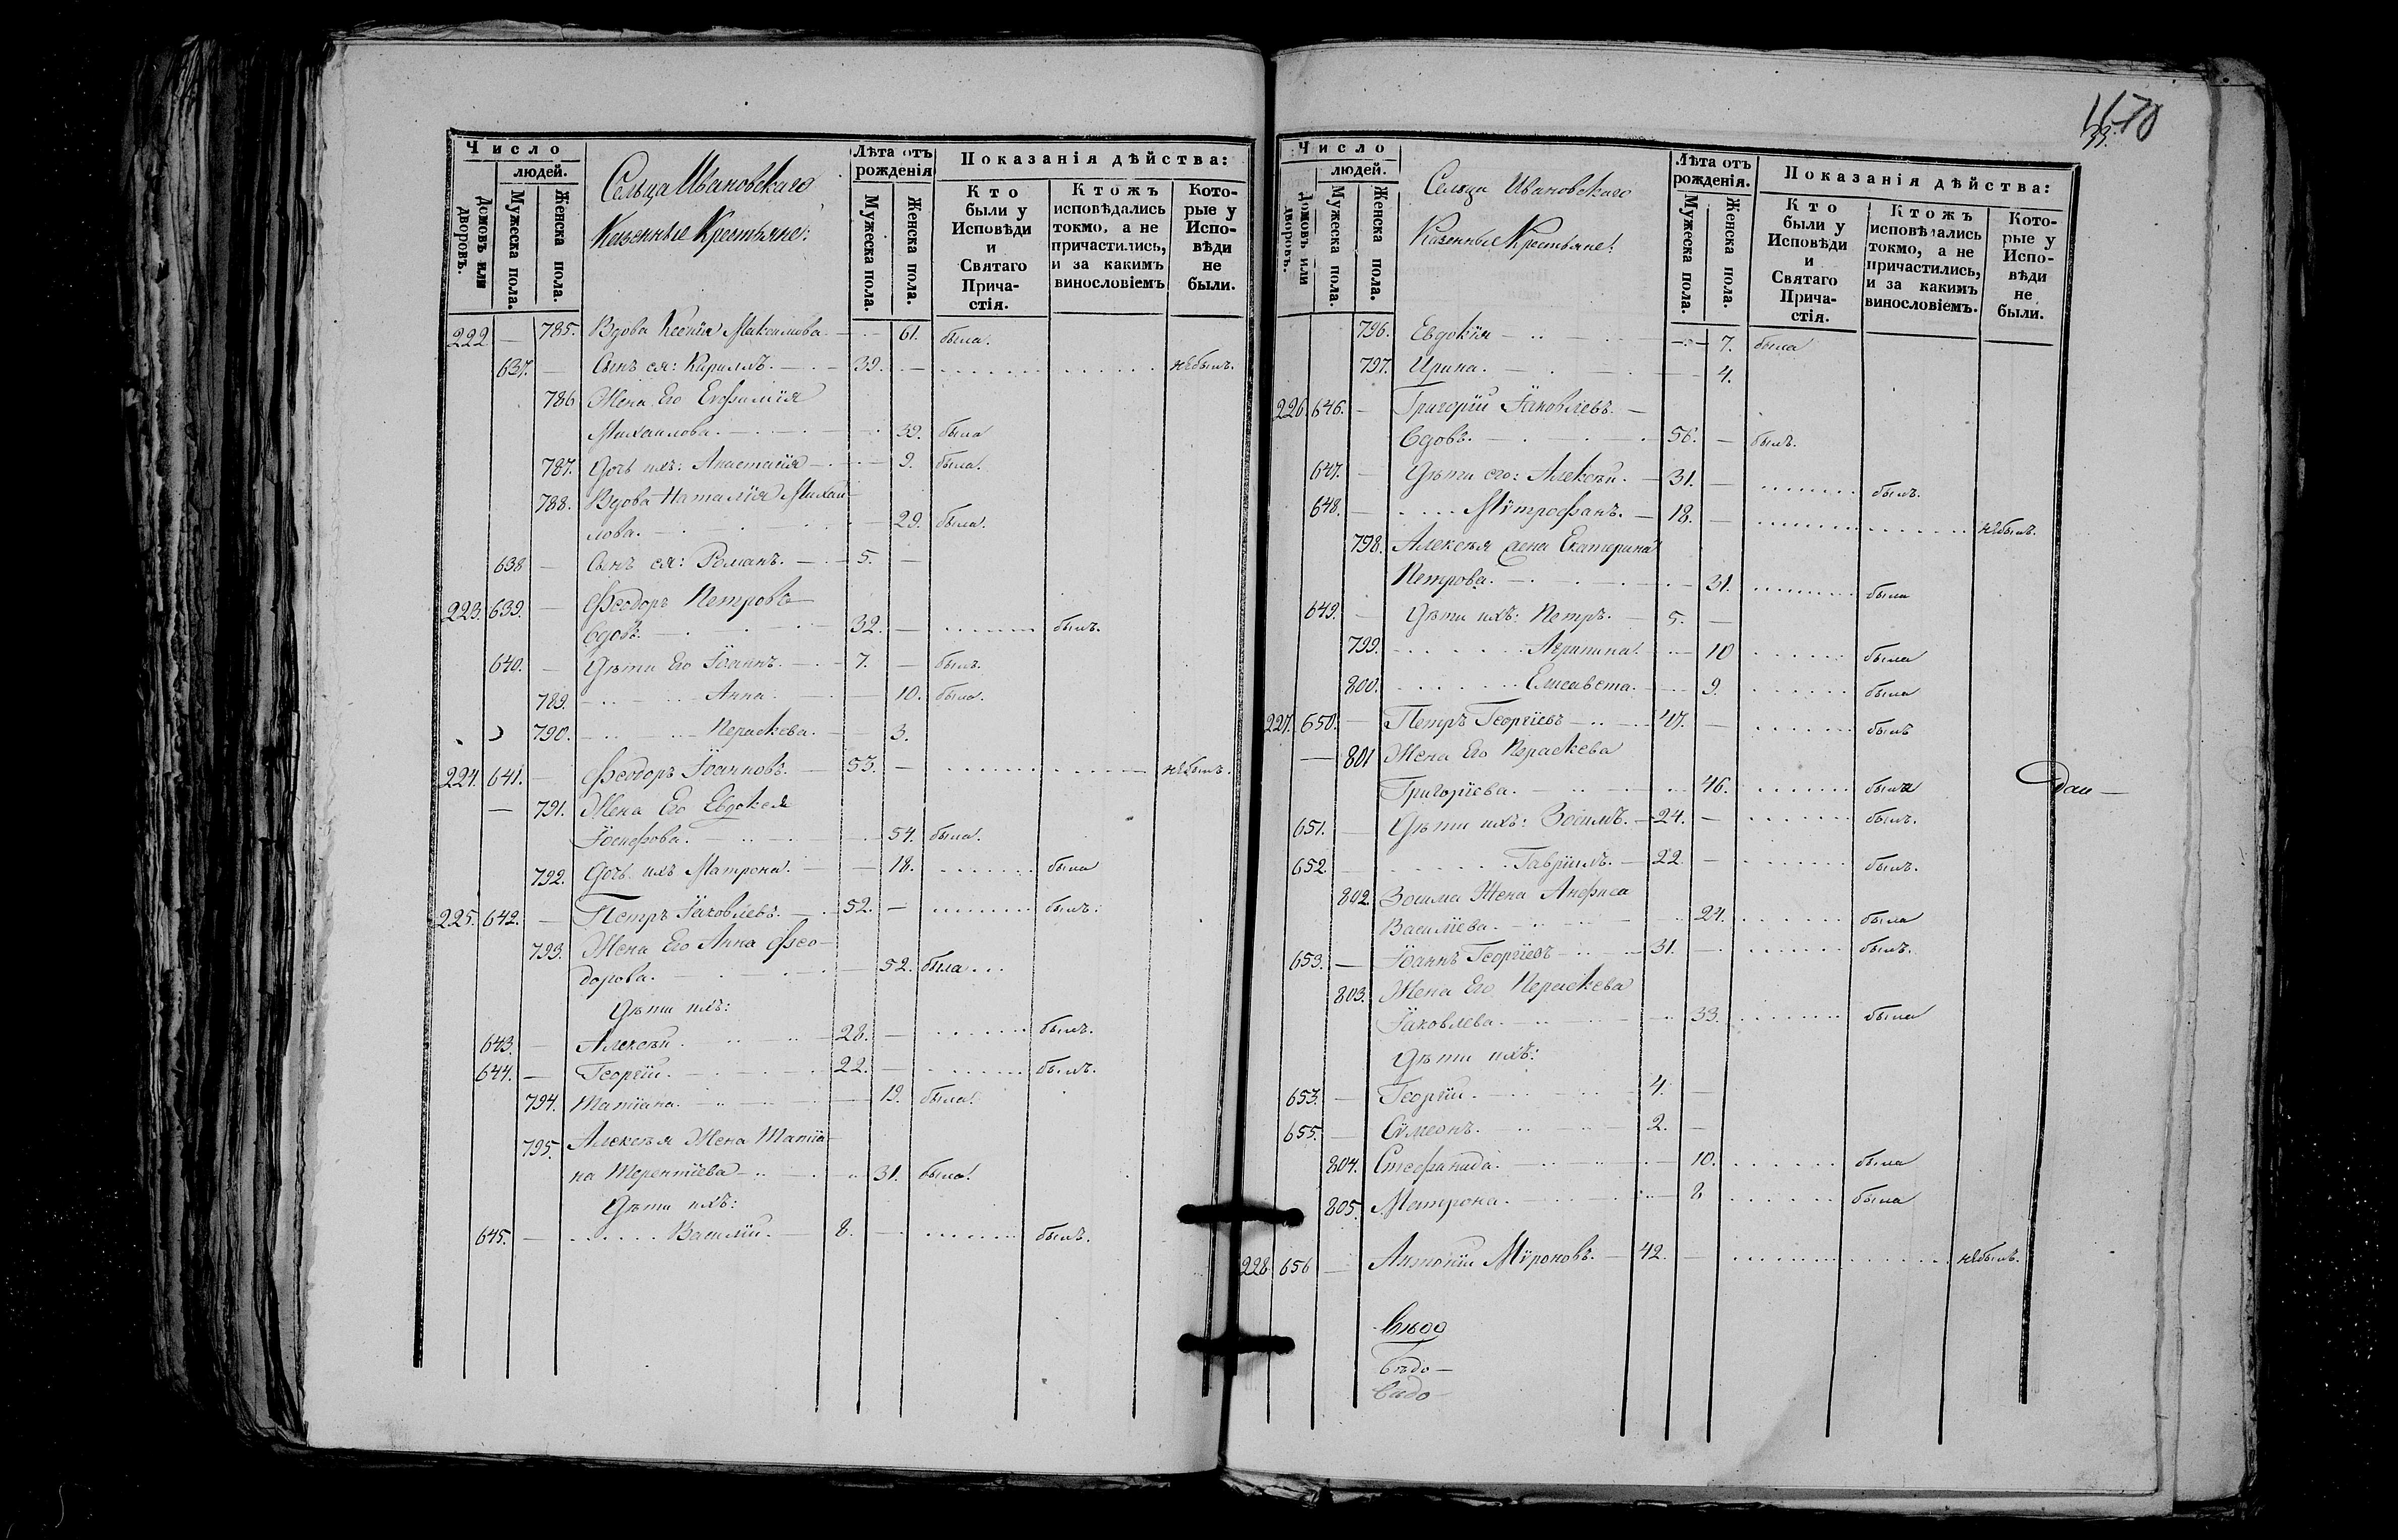 Число
людей.
Домовъ или дворовъ.
Мужеска пола.
Женска пола.
Сельца Ивановскаго
Казенные Крестьяне:
Лѣта отъ рожденія
Мужеска пола.
Женска пола.
Показанія дѣйства:
Кто были у Исповѣди и Святаго Прича-стія.
Ктожъ исповѣдались токмо, а не причастились, и за какимъ винословіемъ
Кото-рые у Испо-вѣди не были.
222. — 785. Вдова Ксенія Максимова. — 61. была.
637. — Сынъ ея: Кириллъ. — 39. — небылъ.
786 Жена Его Евфимія
Михаилова. — 39. была
787. Дочь ихъ: Анастасія — 9. была.
788. Вдова Наталія Михаи-
лова. — 29. была.
638 — Сынъ ея: Романъ. — 5. —
223. 639. — Феодоръ Петровъ
вдовъ. — 32. — былъ.
640. — Дѣти Его Іоаннъ. — 7. — былъ.
789. Анна. — 10. была.
790. Параскева. — 3.
224. 641. — Феодоръ Іоанновъ. — 53. — небылъ.
— 791. Жена Его Евдокея
Іосифова. — 54. была.
792. Дочь ихъ Матрона. — 18. была
225. 642. — Петръ Іаковлевъ. — 52. — былъ.
793. Жена Его Анна Фео-
дорова. — 52. была...
Дѣти ихъ:
643. — Алексѣй. — 28. — былъ.
644. — Георгій. — 22. — былъ.
794. Татіана. — 19. была.
795. Алексѣя Жена Татіа-
на Терентіева — 31. была.
Дѣти ихъ:
645. — Василій. — 8. — былъ.
1170
33.
Число
людей.
Домовъ или дворовъ.
Мужеска пола.
Женска пола.
Сельца Ивановскаго
Казенные Крестьяне:
Лѣта отъ рожденія.
Мужеска пола.
Женска пола.
Показанія дѣйства:
Кто были у Исповѣди и Святаго Прича-стія.
Ктожъ исповѣдались токмо, а не причастились, и за какимъ винословіемъ.
Кото-рые у Испо-вѣди не были.
796. Евдокія — 7. была
797. Ирина. — 4.
226. 646. — Григорій Іаковлевъ. —
вдовъ. — 56. — былъ.
647. — Дѣти его: Алексѣй. — 31. — былъ.
648. — Митрофанъ. — 18. — небылъ.
798. Алексѣя жена Екатерина
Петрова. — 31. была
649. — Дѣти ихъ: Петръ. — 5. —
799. Агрипина. — 10 была
800. Елисавета. — 9. была
227. 650. — Петръ Георгіевъ — 47. — былъ
— 801 Жена Его Параскева
Григоріева. — 46. была
651. — Дѣти ихъ: Зосимъ. — 24. — былъ.
652. — Гавріилъ. — 22. — былъ.
802. Зосима Жена Анфиса
Василіева. — 24. была
653. — Іоаннъ Георгіевъ — 31. — былъ.
803. Жена Его Параскева
Іаковлева. — 33. была
Дѣти ихъ:
653. — Георгій. — 4. —
655. — Сѵмеонъ. — 2. —
804. Стефанида. — 10. была
805. Матрона. — 8 была
228 656 — Антоній Мѵроновъ. — 42. — небылъ.